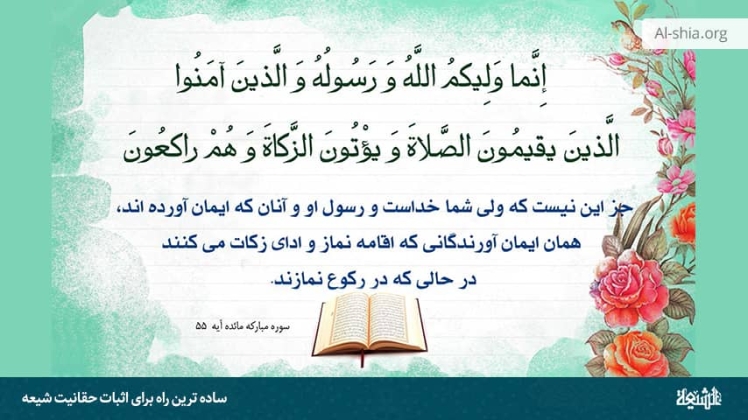 Al-shia.org
إِنَّما وَلِيكمُ اللَّهُ وَ رَسُولُهُ وَ الَّذينَ آمَنُوا
الَّذينَ يقيمُونَ الصَّلاةَ وَ يؤْتُونَ الزَّكاةَ وَ هُمْ راكعُونَ
جز این نیست که ولی شما خداست و رسول او و آنان که ایمان آورده اند،
همان ایمان آورندگانی که اقامه نماز و ادای زکات می کنند
در حالی که در رکوع نمازند.
سوره مبارکه مائده آیه ۵۵
الشیعة
ساده ترین راه برای اثبات حقانیت شیعه